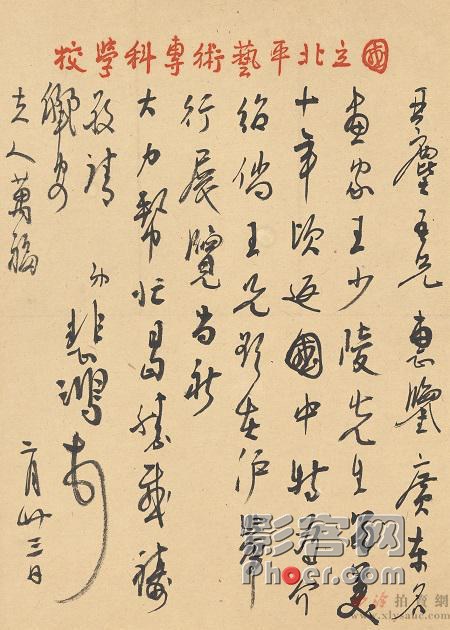 國立北平藝術專科學校
吾兄惠鑒廣東名
畫家王少陵先生留美
十年頃返國中特為介
紹倘王兄欲在滬舉
行展覽尚祈
大力幫忙曷勝感禱
敬請
儷安
夫人萬福
弟悲鴻頓
二月廿三日
影客网
Phoer.com
西泠拍賣網
www.xlysauc.com